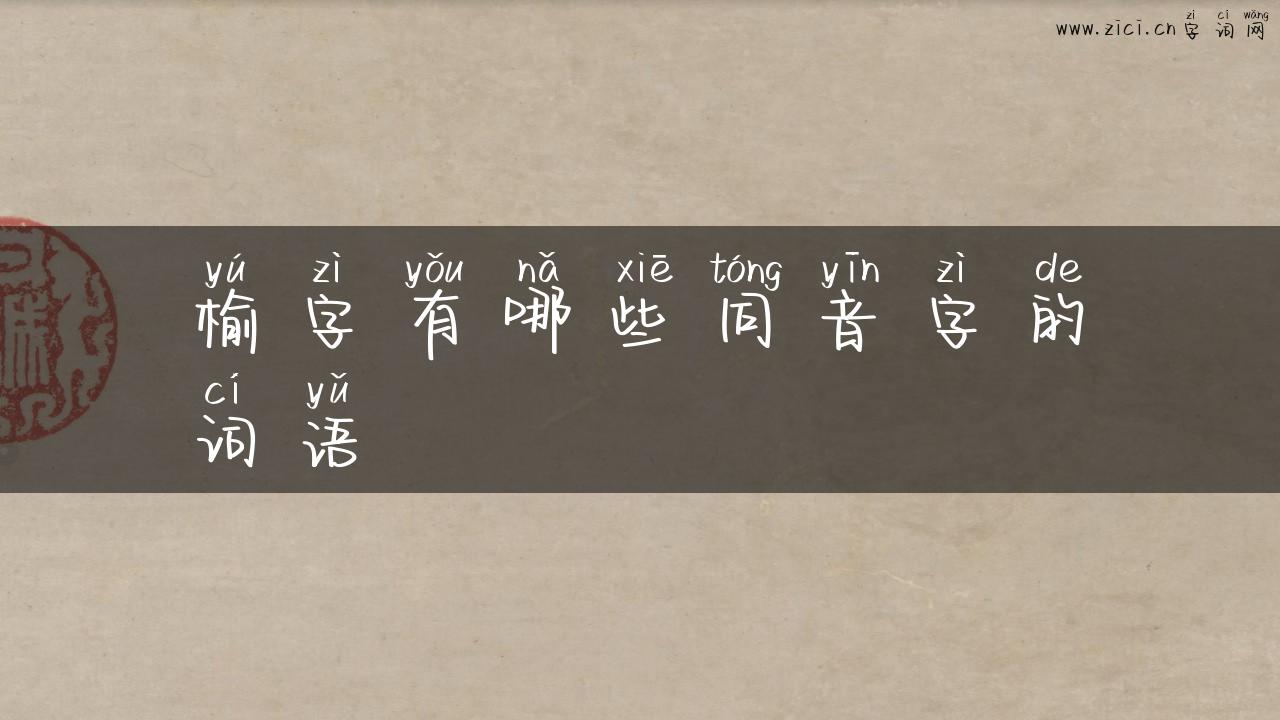 zì cí wǎng
www.zici.cn字词网
yú zì yǒu nǎ xiē tóng yīn zì de
榆字有哪些同音字的
cí yǔ
词语